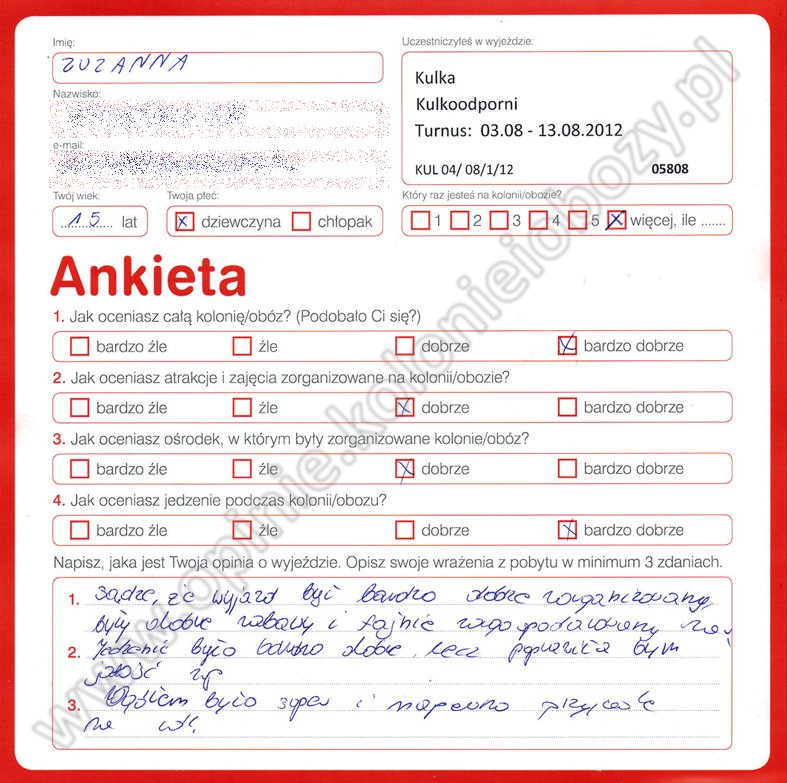 Imię:
ZUZANNA
Nazwisko:
e-mail:
Twój wiek:
15 lat
Twoja płeć:
dziewczyna chłopak
Uczestniczyłeś w wyjeździe:
Kulka
Kulkoodporni
Turnus: 03.08 - 13.08.2012
KUL 04/ 08/1/12 05808
Który raz jesteś na kolonii/obozie?
1 2 3 4 5 więcej, ile .......
Ankieta
1. Jak oceniasz całą kolonię/obóz? (Podobało Ci się?)
bardzo źle źle dobrze bardzo dobrze
2. Jak oceniasz atrakcje i zajęcia zorganizowane na kolonii/obozie?
bardzo źle źle dobrze bardzo dobrze
3. Jak oceniasz ośrodek, w którym były zorganizowane kolonie/obóz?
bardzo źle źle dobrze bardzo dobrze
4. Jak oceniasz jedzenie podczas kolonii/obozu?
bardzo źle źle dobrze bardzo dobrze
Napisz, jaka jest Twoja opinia o wyjeździe. Opisz swoje wrażenia z pobytu w minimum 3 zdaniach.
1. Sądzę, że wyjazd był bardzo dobrze zorganizowany,
były dobre zabawy i fajnie zagospodarowany
2. Jedzenie było bardzo dobre, lecz poprawiła bym
jakość
3. było super i napewno przyjadę
za
www.opinie.kolonieiobozy.pl